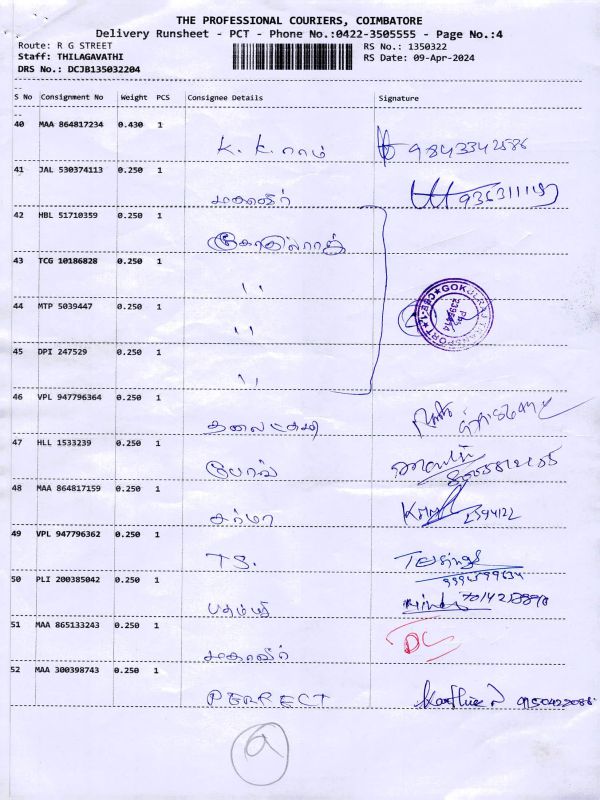 THE PROFESSIONAL COURIERS, COIMBATORE
Delivery Runsheet - PCT - Phone No.:0422-3505555 - Page No.:4
Route: R G STREET
RS No.: 1350322
Staff: THILAGAVATHI
RS Date: 09-Apr-2024
DRS No.: DCJB135032204
S No Consignment No Weight PCS Consignee Details Signature
40 MAA 864817234 0.430 1
K. K. ராம் 9843342586
41 JAL 530374113 0.250 1
மகாவீர்
42 HBL 51710359 0.250 1
கோகுல்ராஜ்
43 TCG 10186828 0.250 1
''
44 MTP 5039447 0.250 1
''
GOKULRAJ TRANSPORT
45 DPI 247529 0.250 1
''
46 VPL 947796364 0.250 1
47 HLL 1533239 0.250 1
போஸ்
48 MAA 864817159 0.250 1
சர்மா 2394122
49 VPL 947796362 0.250 1
TS.
9994599634
50 PLI 200385042 0.250 1
51 MAA 865133243 0.250 1
மகாவீர் DC
52 MAA 300398743 0.250 1
PERRECT 9150422086
a